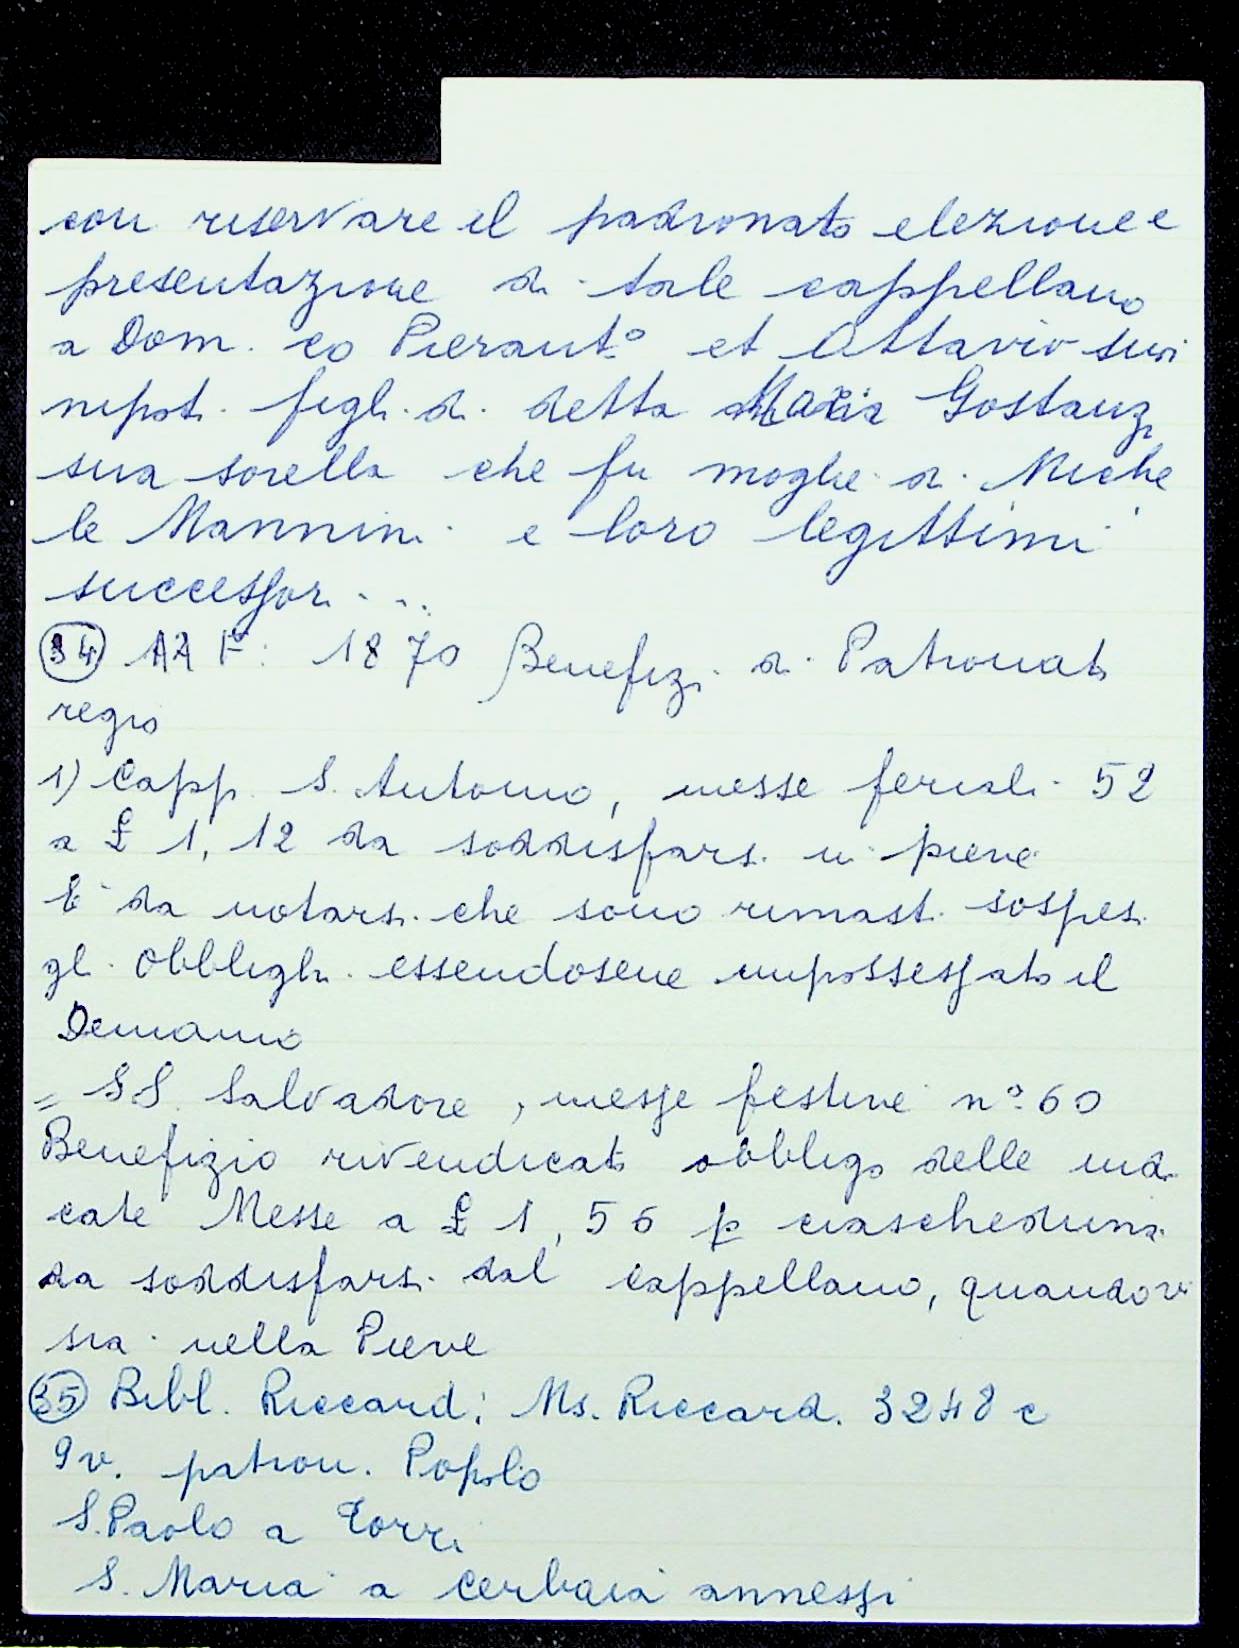 con riservare il padronato elezione e
presentazione di tale cappellano
a Dom. co Pierant.o et Ottavio suoi
nipoti figli di detta Maria Gostanz
sua sorella che fu moglie di Miche
le Mannini e loro legittimi
successori...
34 AAF: 1870 Benefizi di Patronato
regio
1) Capp. S. Antonio, messe feriali 52
a £ 1,12 da soddisfarsi in pieve
E' da notarsi che sono rimasti sospesi
gli obblighi essendosene impossessato il
Demanio
= SS. Salvadore, messe festive n.o 60
Benefizio rivendicato obbligo delle indi
cate Messe a £ 1,56 p ciascheduna
da soddisfarsi dal cappellano, quando vi
sia nella Pieve
35 Bibl. Riccard: Ms. Riccard. 3248 c
9v. patron. Popolo
S. Paolo a Torri
S. Maria a Cerbaia annessi